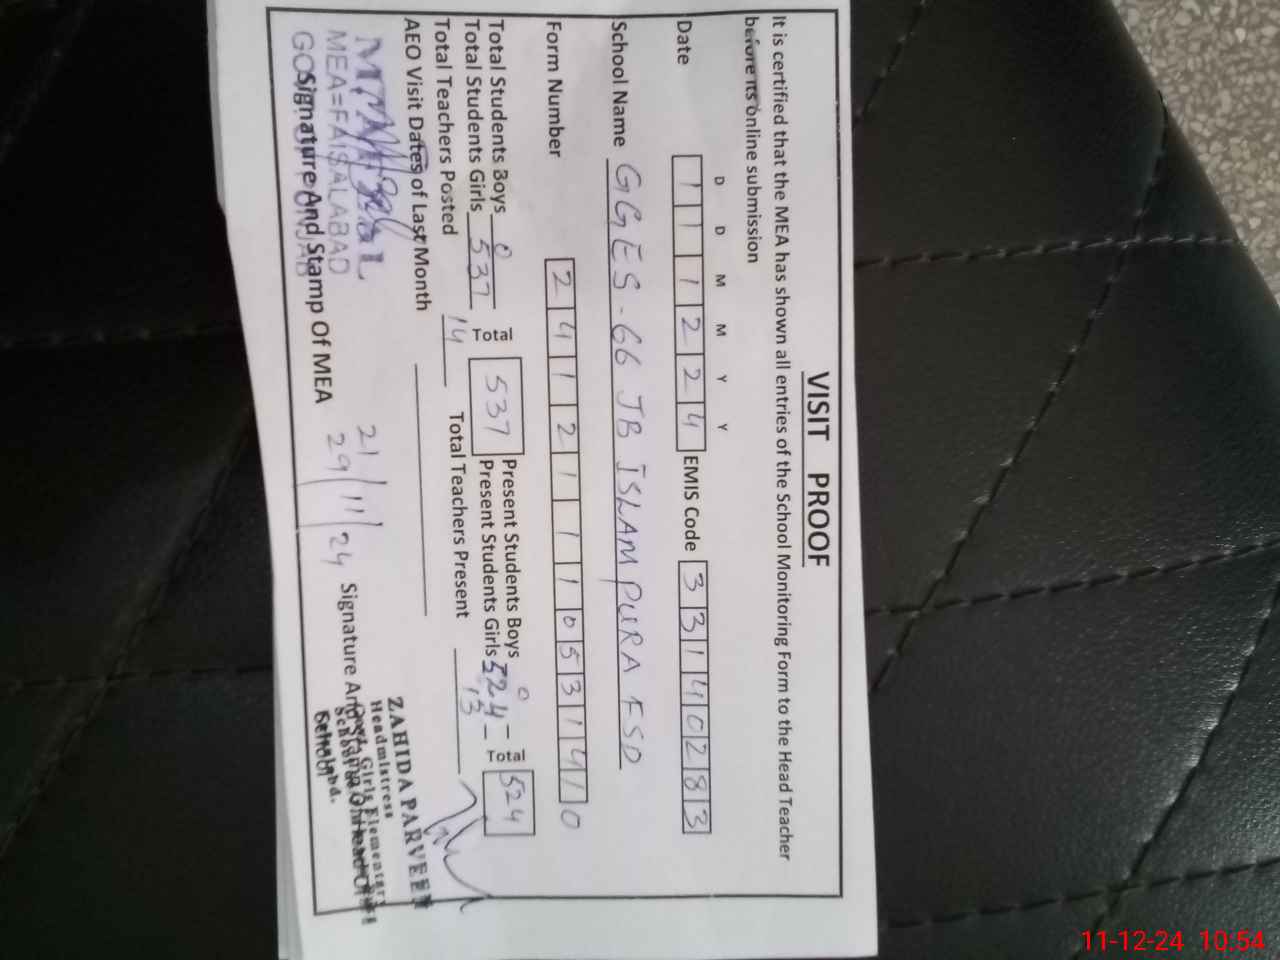 VISIT PROOF
It is certified that the MEA has shown all entries of the School Monitoring Form to the Head Teacher
before its online submission
D D M M Y Y
Date 1 1 1 2 2 4 EMIS Code 3 3 1 4 0 2 8 3
School Name GGES-66 JB ISLAMPURA FSD
Form Number 2 4 1 2 1 1 1 1 0 5 3 1 4 1 0
Total Students Boys 0 Present Students Boys 0
Total Students Girls 537 Total 537 Present Students Girls 524 Total 524
Total Teachers Posted 14 Total Teachers Present 13
AEO Visit Dates of Last Month
21/11/24
29/11/24
MEA=FAISALABAD
Signature And Stamp Of MEA
ZAHIDA PARVEEN
Headmistress
Govt. Girls Elementary
School
Signature And Stamp Of Head Of
School
11-12-24 10:54